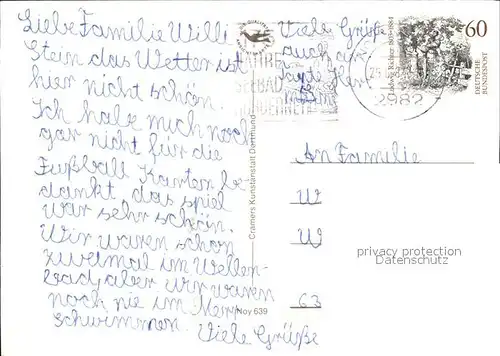 Liebe Familie Willi
Stein das Wetter ist
hier nicht schön.
Ich habe mich noch
gar nicht für die
Fußball Karten be
dankt das spiel
war sehr schön.
Wir waren schon
zweimal im Wellen-
bad, aber wir waren
noch nie im Meer
schwimmen. Viele Grüße
Viele Grüße
auch an
JAHRE
SEEBAD
NORDERNEY
2982
60
DEUTSCHE
BUNDESPOST
Cramers Kunstanstalt Dortmund
Noy 639
An Familie
W
W
63
privacy protection
Datenschutz